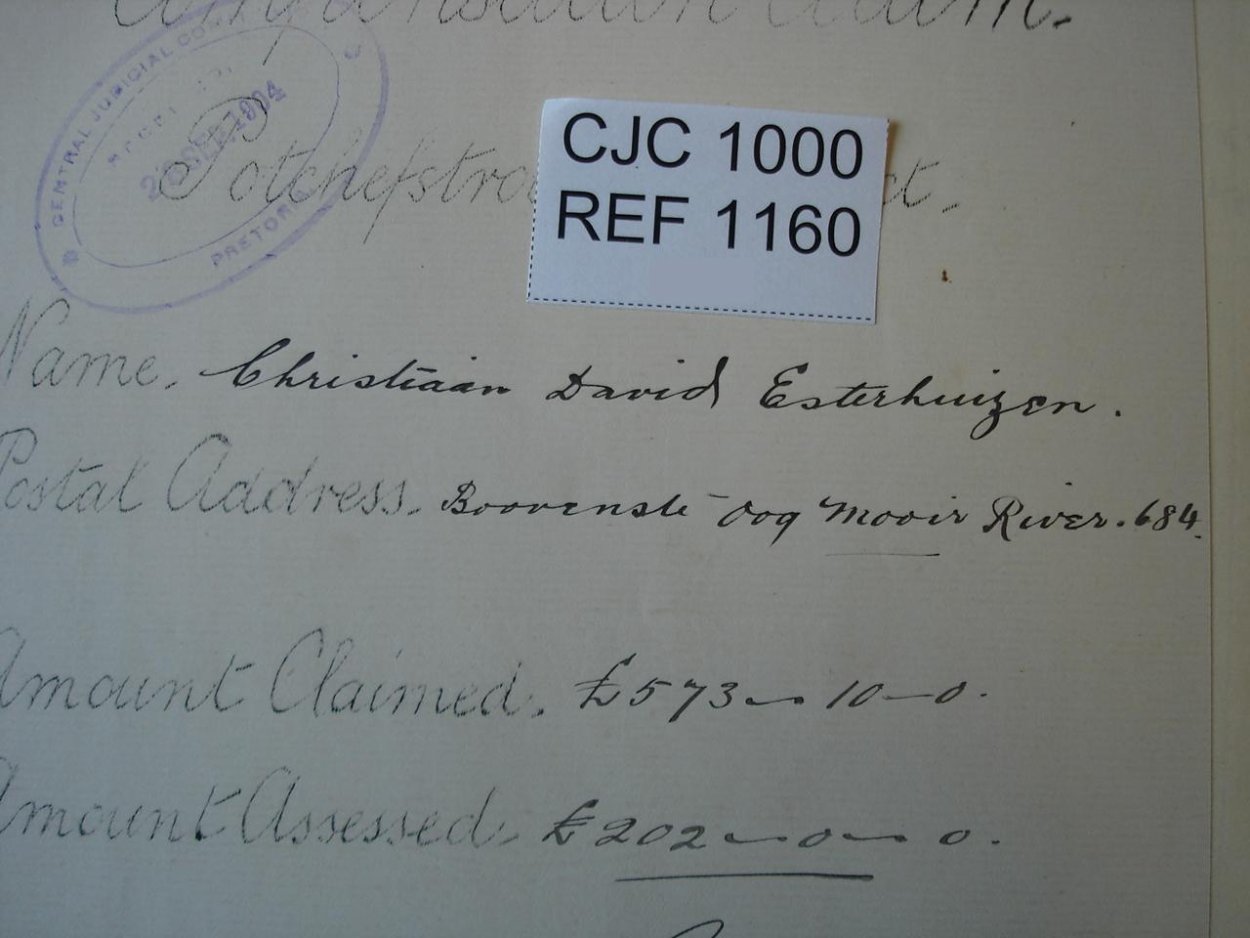 Compensation Claim.
CENTRAL JUDICIAL
1904
PRETORIA
Potchefstroo ct.
CJC 1000
REF 1160
Name. Christiaan David Esterhuizen.
Postal Address. Boovenste Oog Mooir River. 684.
Amount Claimed. £573 - 10 - 0.
Amount Assessed. £202 - 0 - 0.